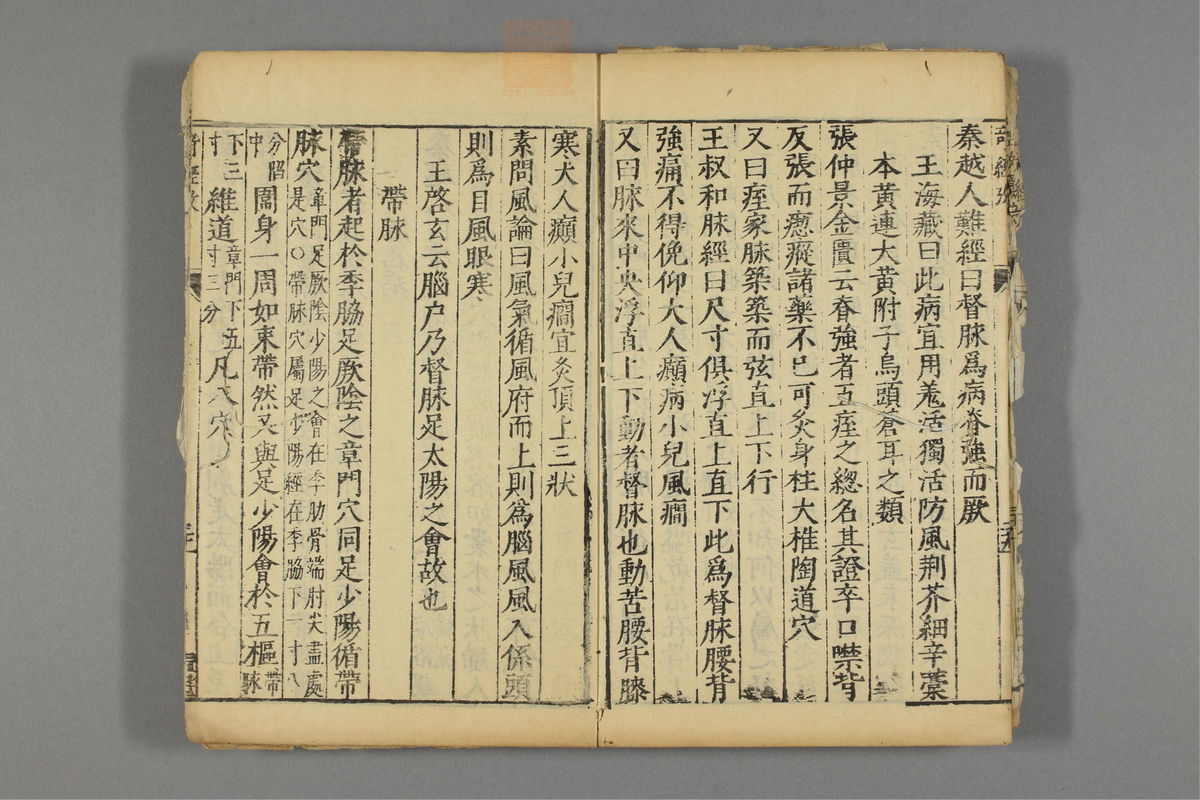 秦越人難經曰督脉爲病脊強而厥
王海藏曰此病宜用羗活獨活防風荆芥細辛藁
本黄連大黄附子烏頭蒼耳之類
張仲景金匱云脊強者五痓之總名其證卒口噤背
反張而瘛瘲諸藥不已可灸身柱大椎陶道穴
又曰痓家脉築築而弦直上下行
王叔和脉經曰尺寸俱浮直上直下此爲督脉腰背
強痛不得俛仰大人癲病小兒風癎
又曰脉來中央浮直上下動者督脉也動苦腰背膝
寒大人癲小兒癎宜灸頂上三壯
素問風論曰風氣循風府而上則爲腦風風入係頭
則爲目風眼寒
王啓玄云腦户乃督脉足太陽之會故也
帶脉
帶脉者起於季脇足厥陰之章門穴同足少陽循帶
脉穴章門足厥陰少陽之會在季肋骨端肘尖盡處
是穴〇帶脉穴屬足少陽經在季脇下一寸八
分陷
中圍身一周如束帶然又與足少陽會於五樞帶
脉
下三
寸維道章門下五
寸三分凡八穴